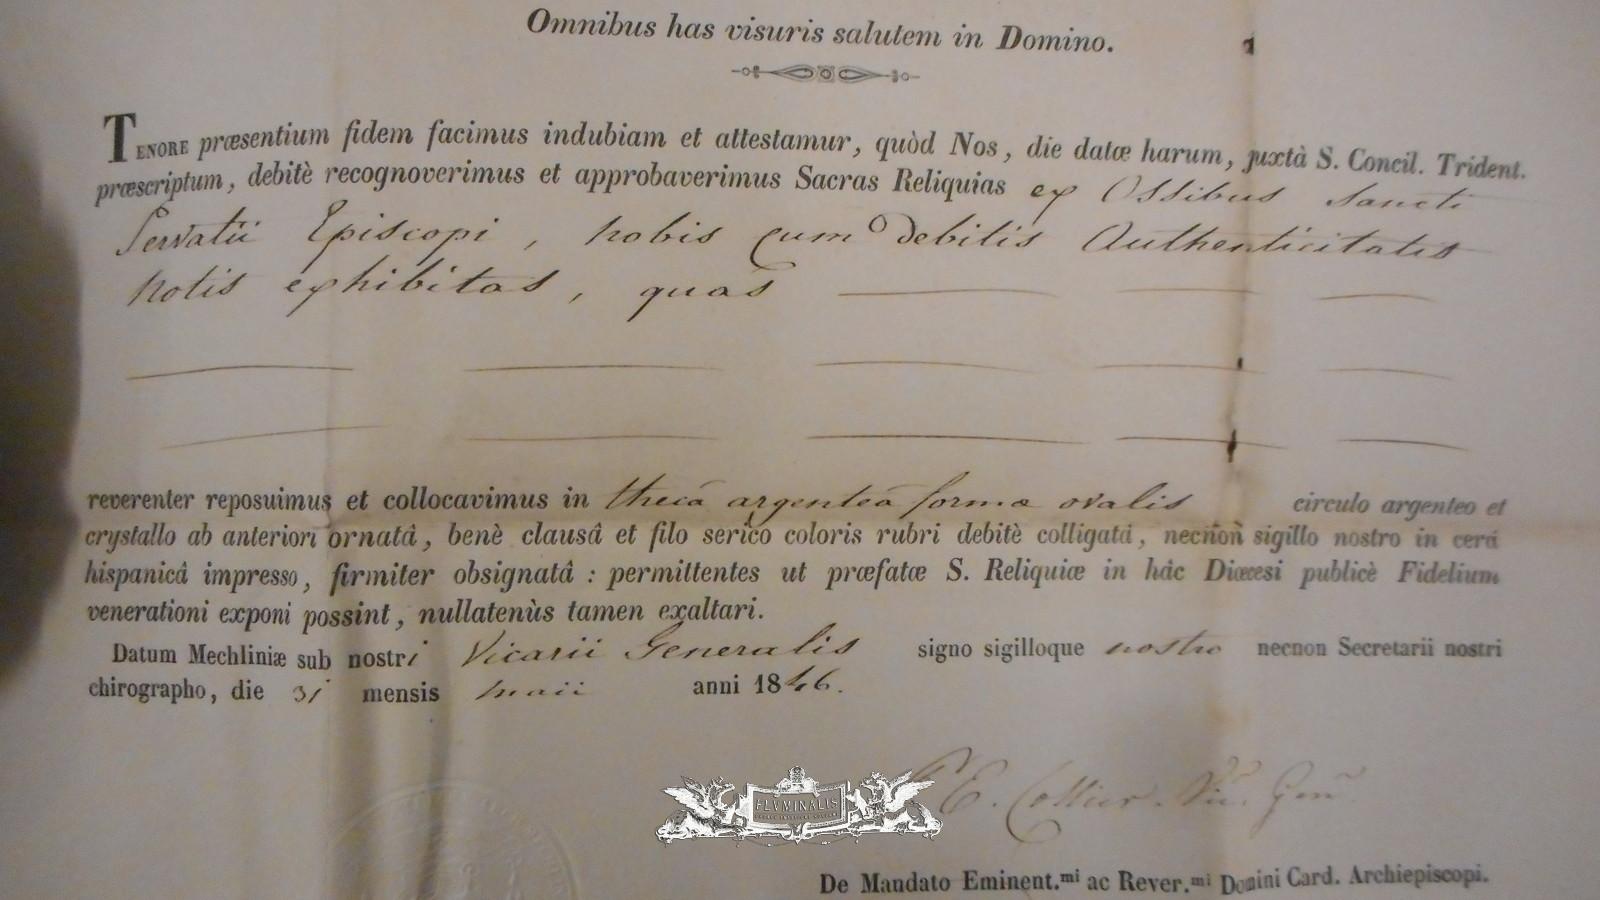 Omnibus has visuris salutem in Domino.
TENORE præsentium fidem facimus indubiam et attestamur, quòd Nos, die datæ harum, juxtà S. Concil. Trident.
præscriptum, debitè recognoverimus et approbaverimus Sacras Reliquias ex Ossibus Sancti
Servatii Episcopi, nobis cum debitis Authenticitatis
notis exhibitas, quas
reverenter reposuimus et collocavimus in thecâ argenteâ formæ ovalis circulo argenteo et
crystallo ab anteriori ornatâ, benè clausâ et filo serico coloris rubri debitè colligatâ, necnon sigillo nostro in cerâ
hispanicâ impresso, firmiter obsignatâ : permittentes ut præfatæ S. Reliquiæ in hâc Diœcesi publicè Fidelium
venerationi exponi possint, nullatenùs tamen exaltari.
Datum Mechliniæ sub nostri Vicarii Generalis signo sigilloque nostro necnon Secretarii nostri
chirographo, die 31 mensis maii anni 1846.
FLVMINALIS
E. Collier. Vic. Gen
De Mandato Eminent.mi ac Rever.mi Domini Card. Archiepiscopi.